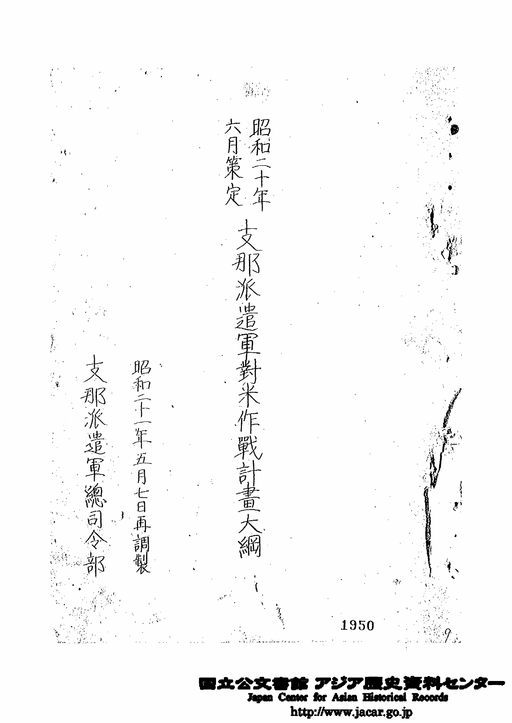 昭和二十年
六月策定
支那派遣軍對米作戰計畫大綱
昭和二十一年五月七日再調製
支那派遣軍總司令部
1950
9
国立公文書館 アジア歴史資料センター
Japan Center for Asian Historical Records
http://www.jacar.go.jp